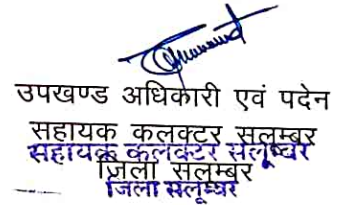 उपखण्ड अधिकारी एवं पदेन
सहायक कलक्टर सलुम्बर
सहायक कलक्टर सलूम्बर
ज़िला सलुम्बर
जिला सलूम्बर